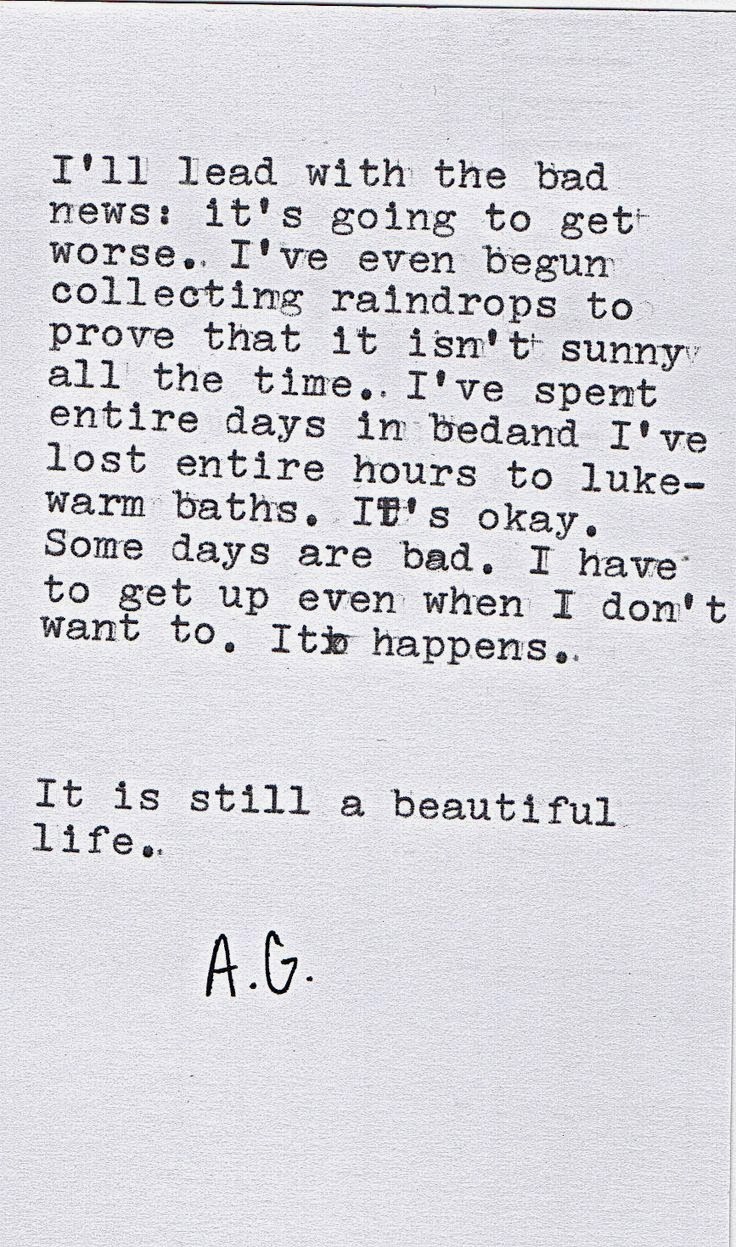 I'll lead with the bad
news: it's going to get
worse. I've even begun
collecting raindrops to
prove that it isn't sunny
all the time. I've spent
entire days in bedand I've
lost entire hours to luke-
warm baths. It's okay.
Some days are bad. I have
to get up even when I don't
want to. It happens.
It is still a beautiful
life.
A.G.